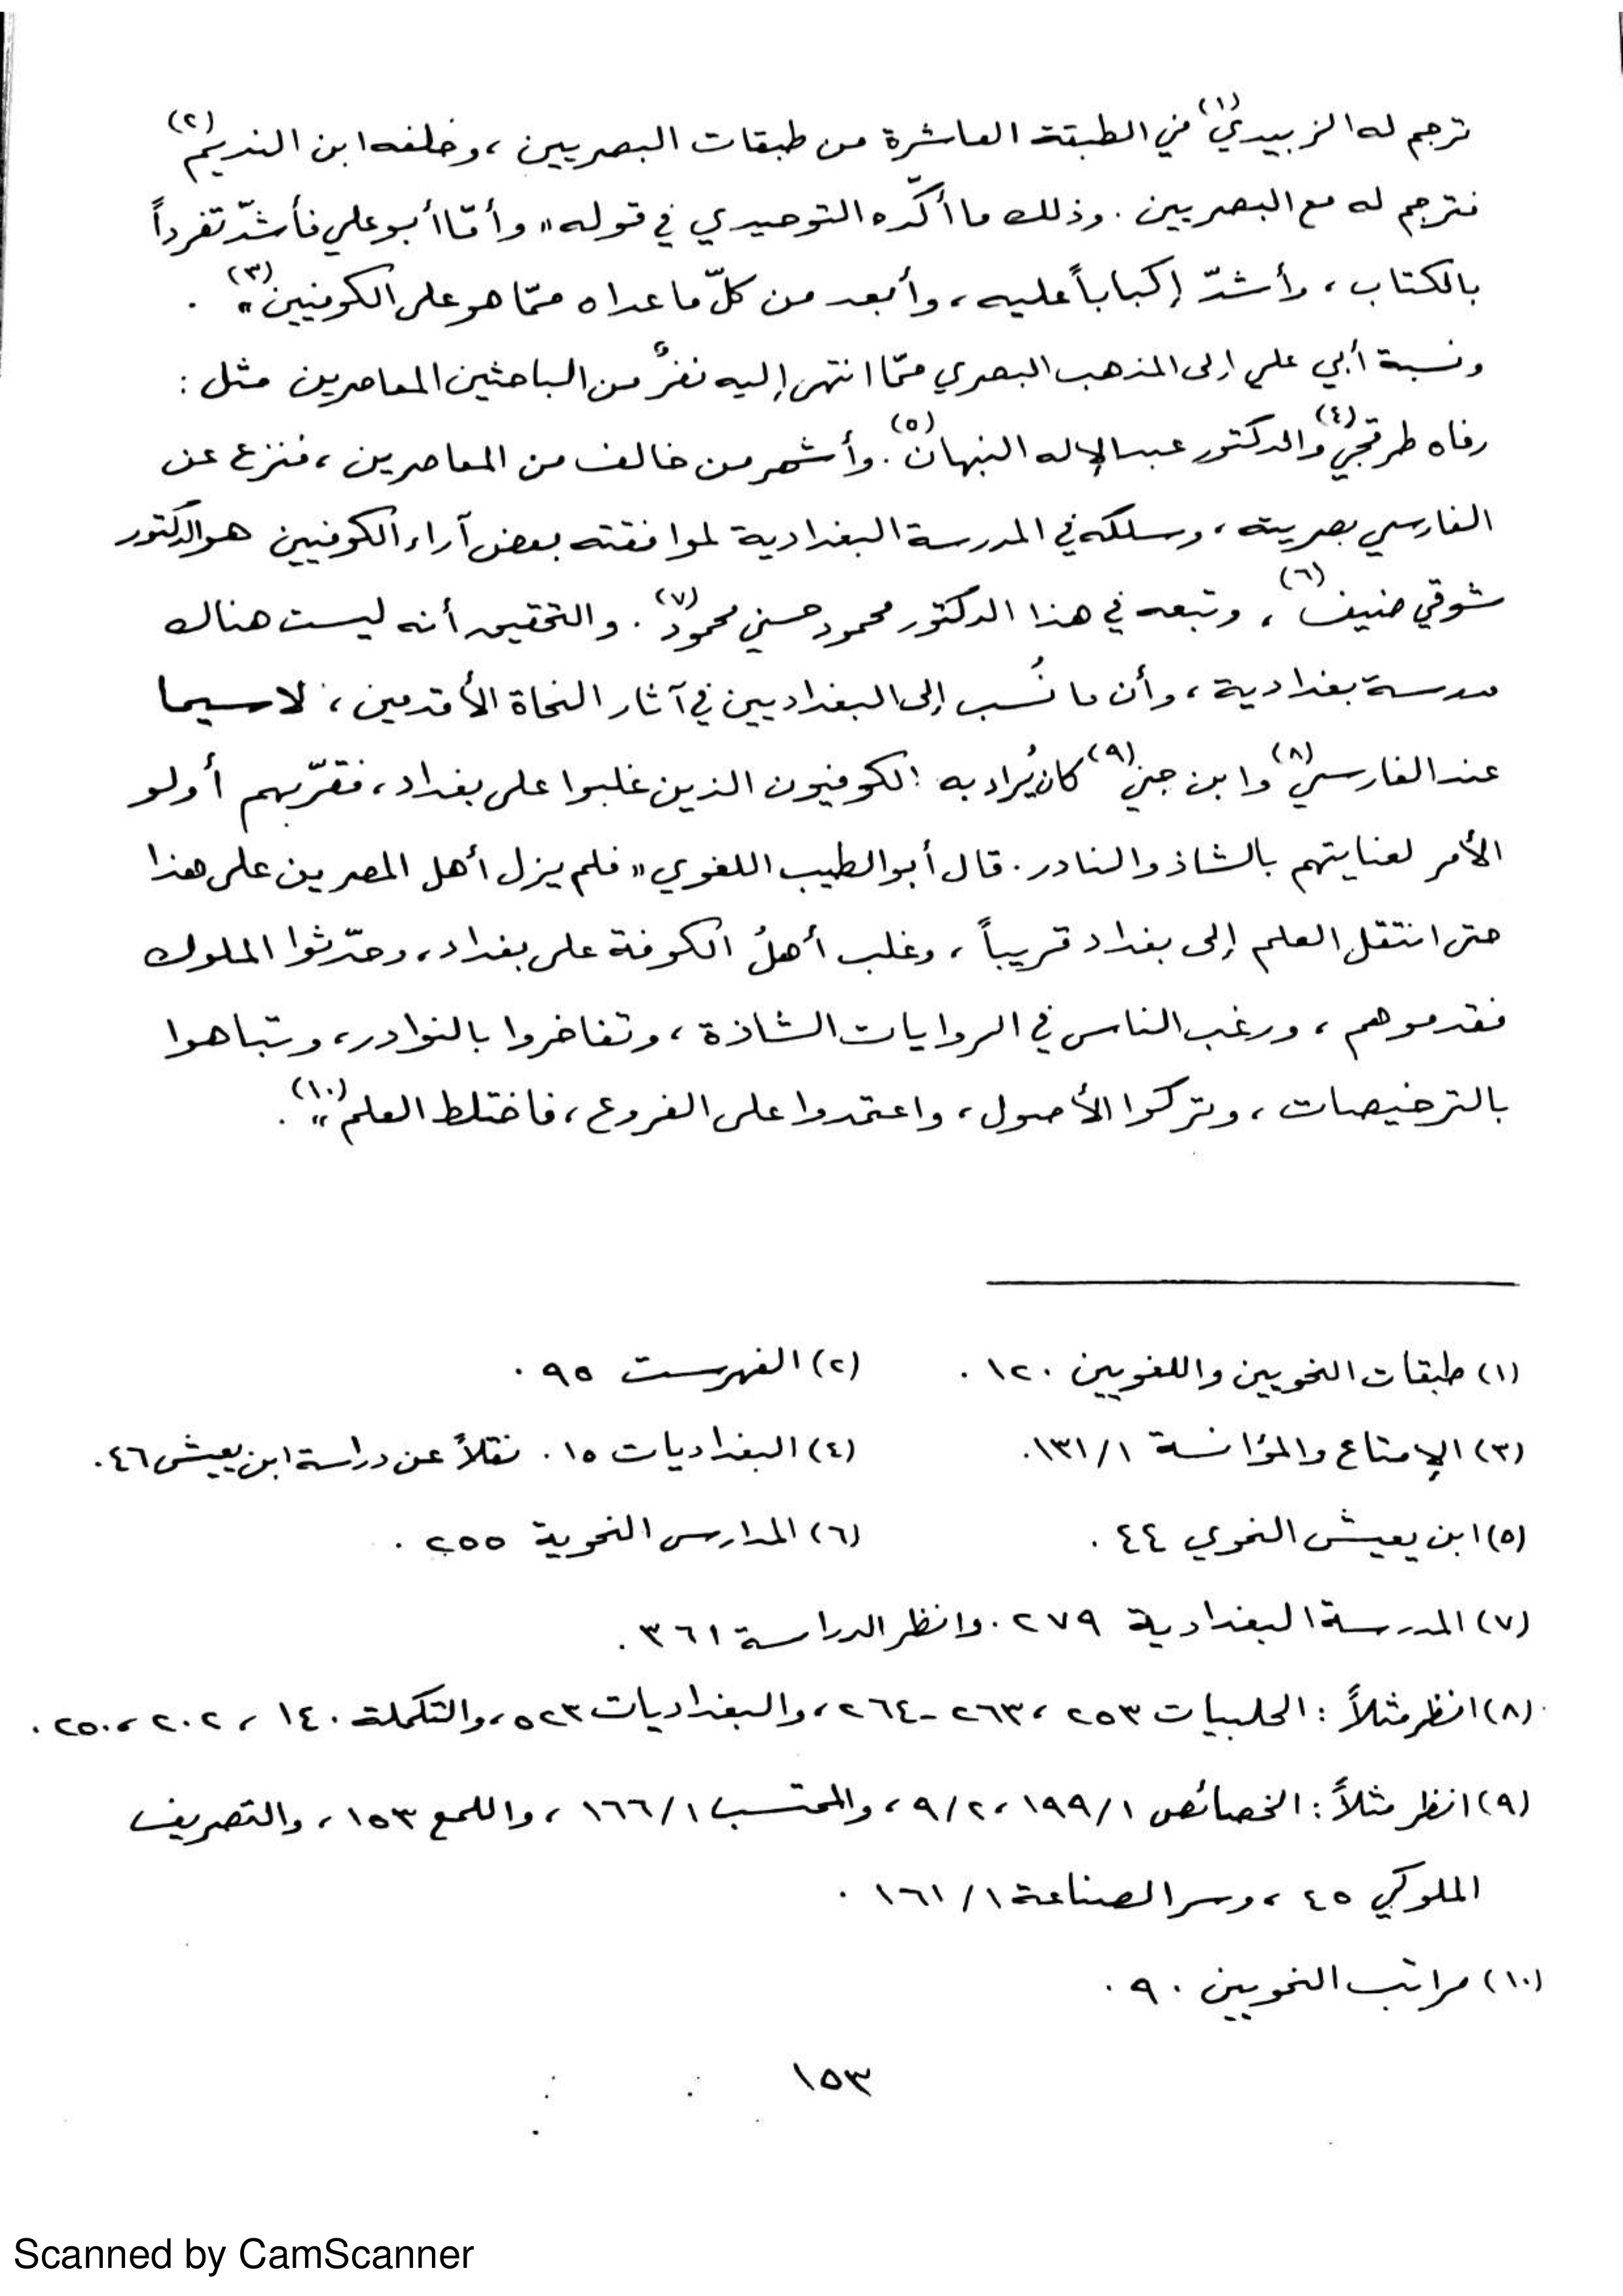 ترجم له الزبيدي(١) في الطبقة العاشرة من طبقات البصريين ، وخلفه ابن النديم(٢)
فترجم له مع البصريين . وذلك ما أكّده التوحيدي في قوله « وأمّا أبو علي فأشدّ تفرداً
بالكتاب ، وأشدّ إكباباً عليه ، وأبعد من كلّ ما عداه ممّا هو على الكوفيين(٣)» .
ونسبة أبي علي إلى المذهب البصري ممّا انتهى إليه نفرٌ من الباحثين المعاصرين مثل :
رفاه طرقجي(٤) والدكتور عبد الإله النبهان(٥) . وأشهر من خالف من المعاصرين ، فنزع عن
الفارسي بصريته ، وسلكه في المدرسة البغدادية لموافقته بعض آراء الكوفيين هو الدكتور
شوقي ضيف(٦) ، وتبعه في هذا الدكتور محمود حسني محمود(٧) . والتحقيق أنه ليست هناك
مدرسة بغدادية ، وأن ما نُسب إلى البغداديين في آثار النحاة الأقدمين ، لا سيما
عند الفارسي(٨) وابن جني(٩) كان يُراد به الكوفيون الذين غلبوا على بغداد ، فقرّبهم أولو
الأمر لعنايتهم بالشاذ والنادر . قال أبو الطيب اللغوي « فلم يزل أهل المصرين على هذا
حتى انتقل العلم إلى بغداد قريباً ، وغلب أهلُ الكوفة على بغداد ، وحدّثوا الملوك
فقدموهم ، ورغب الناس في الروايات الشاذة ، وتفاخروا بالنوادر ، وتباهوا
بالترخيصات ، وتركوا الأصول ، واعتمدوا على الفروع ، فاختلط العلم(١٠)» .
(١) طبقات النحويين واللغويين ١٢٠ .
(٢) الفهرست ٩٥ .
(٣) الإمتاع والمؤانسة ١٣١/١ .
(٤) البغداديات ١٥ . نقلاً عن دراسة ابن يعيش ٤٦ .
(٥) ابن يعيش النحوي ٤٤ .
(٦) المدارس النحوية ٢٥٥ .
(٧) المدرسة البغدادية ٢٧٩ . وانظر الدراسة ٣٦١ .
(٨) انظر مثلاً : الحلبيات ٢٥٣ ، ٢٦٣-٢٦٤ ، والبغداديات ٥٢٣ ، والتكملة ١٤٠ ، ٢٠٢ ، ٢٥٠ .
(٩) انظر مثلاً : الخصائص ١٩٩/١ ، ٩/٢ ، والمحتسب ١٦٦/١ ، واللمع ١٥٣ ، والتصريف
الملوكي ٤٥ ، وسر الصناعة ١٦١/١ .
(١٠) مراتب النحويين ٩٠ .
١٥٣
Scanned by CamScanner